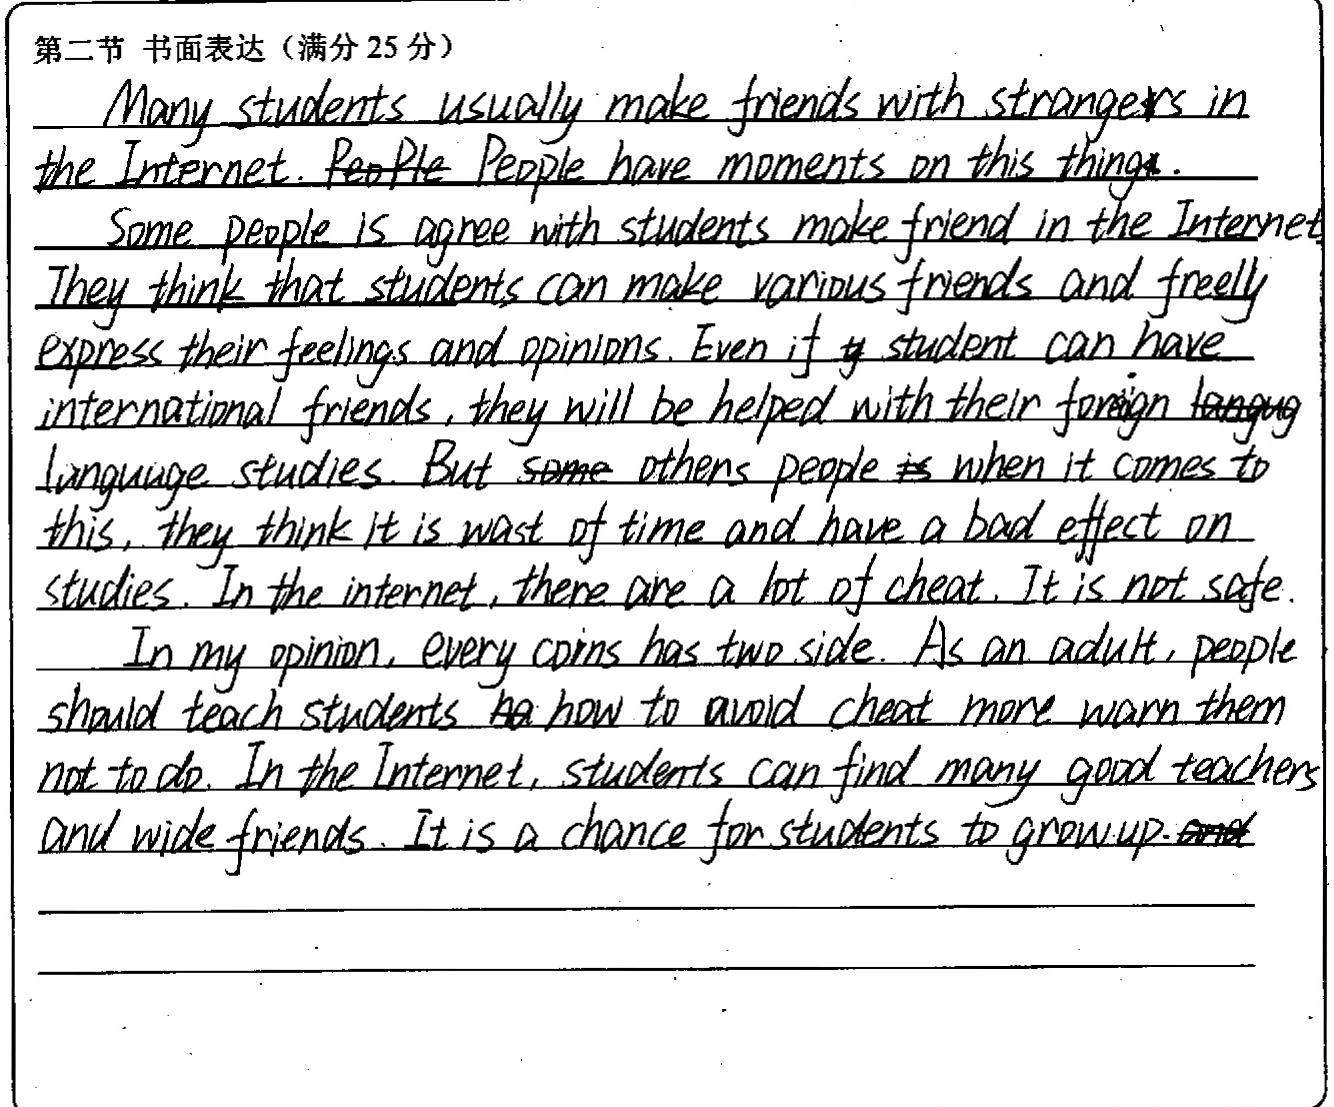 第二节 书面表达（满分 25 分）
Many students usually make friends with strangers in
the Internet. People People have moments on this thing.
Some people is agree with students make friend in the Internet.
They think that students can make various friends and freelly
express their feelings and opinions. Even if student can have
international friends, they will be helped with their foreign langug
language studies. But some others people is when it comes to
this, they think it is wast of time and have a bad effect on
studies. In the internet, there are a lot of cheat. It is not safe.
In my opinion, every coins has two side. As an adult, people
should teach students ho how to avoid cheat more warn them
not to do. In the Internet, students can find many good teachers
and wide friends. It is a chance for students to grow up. and